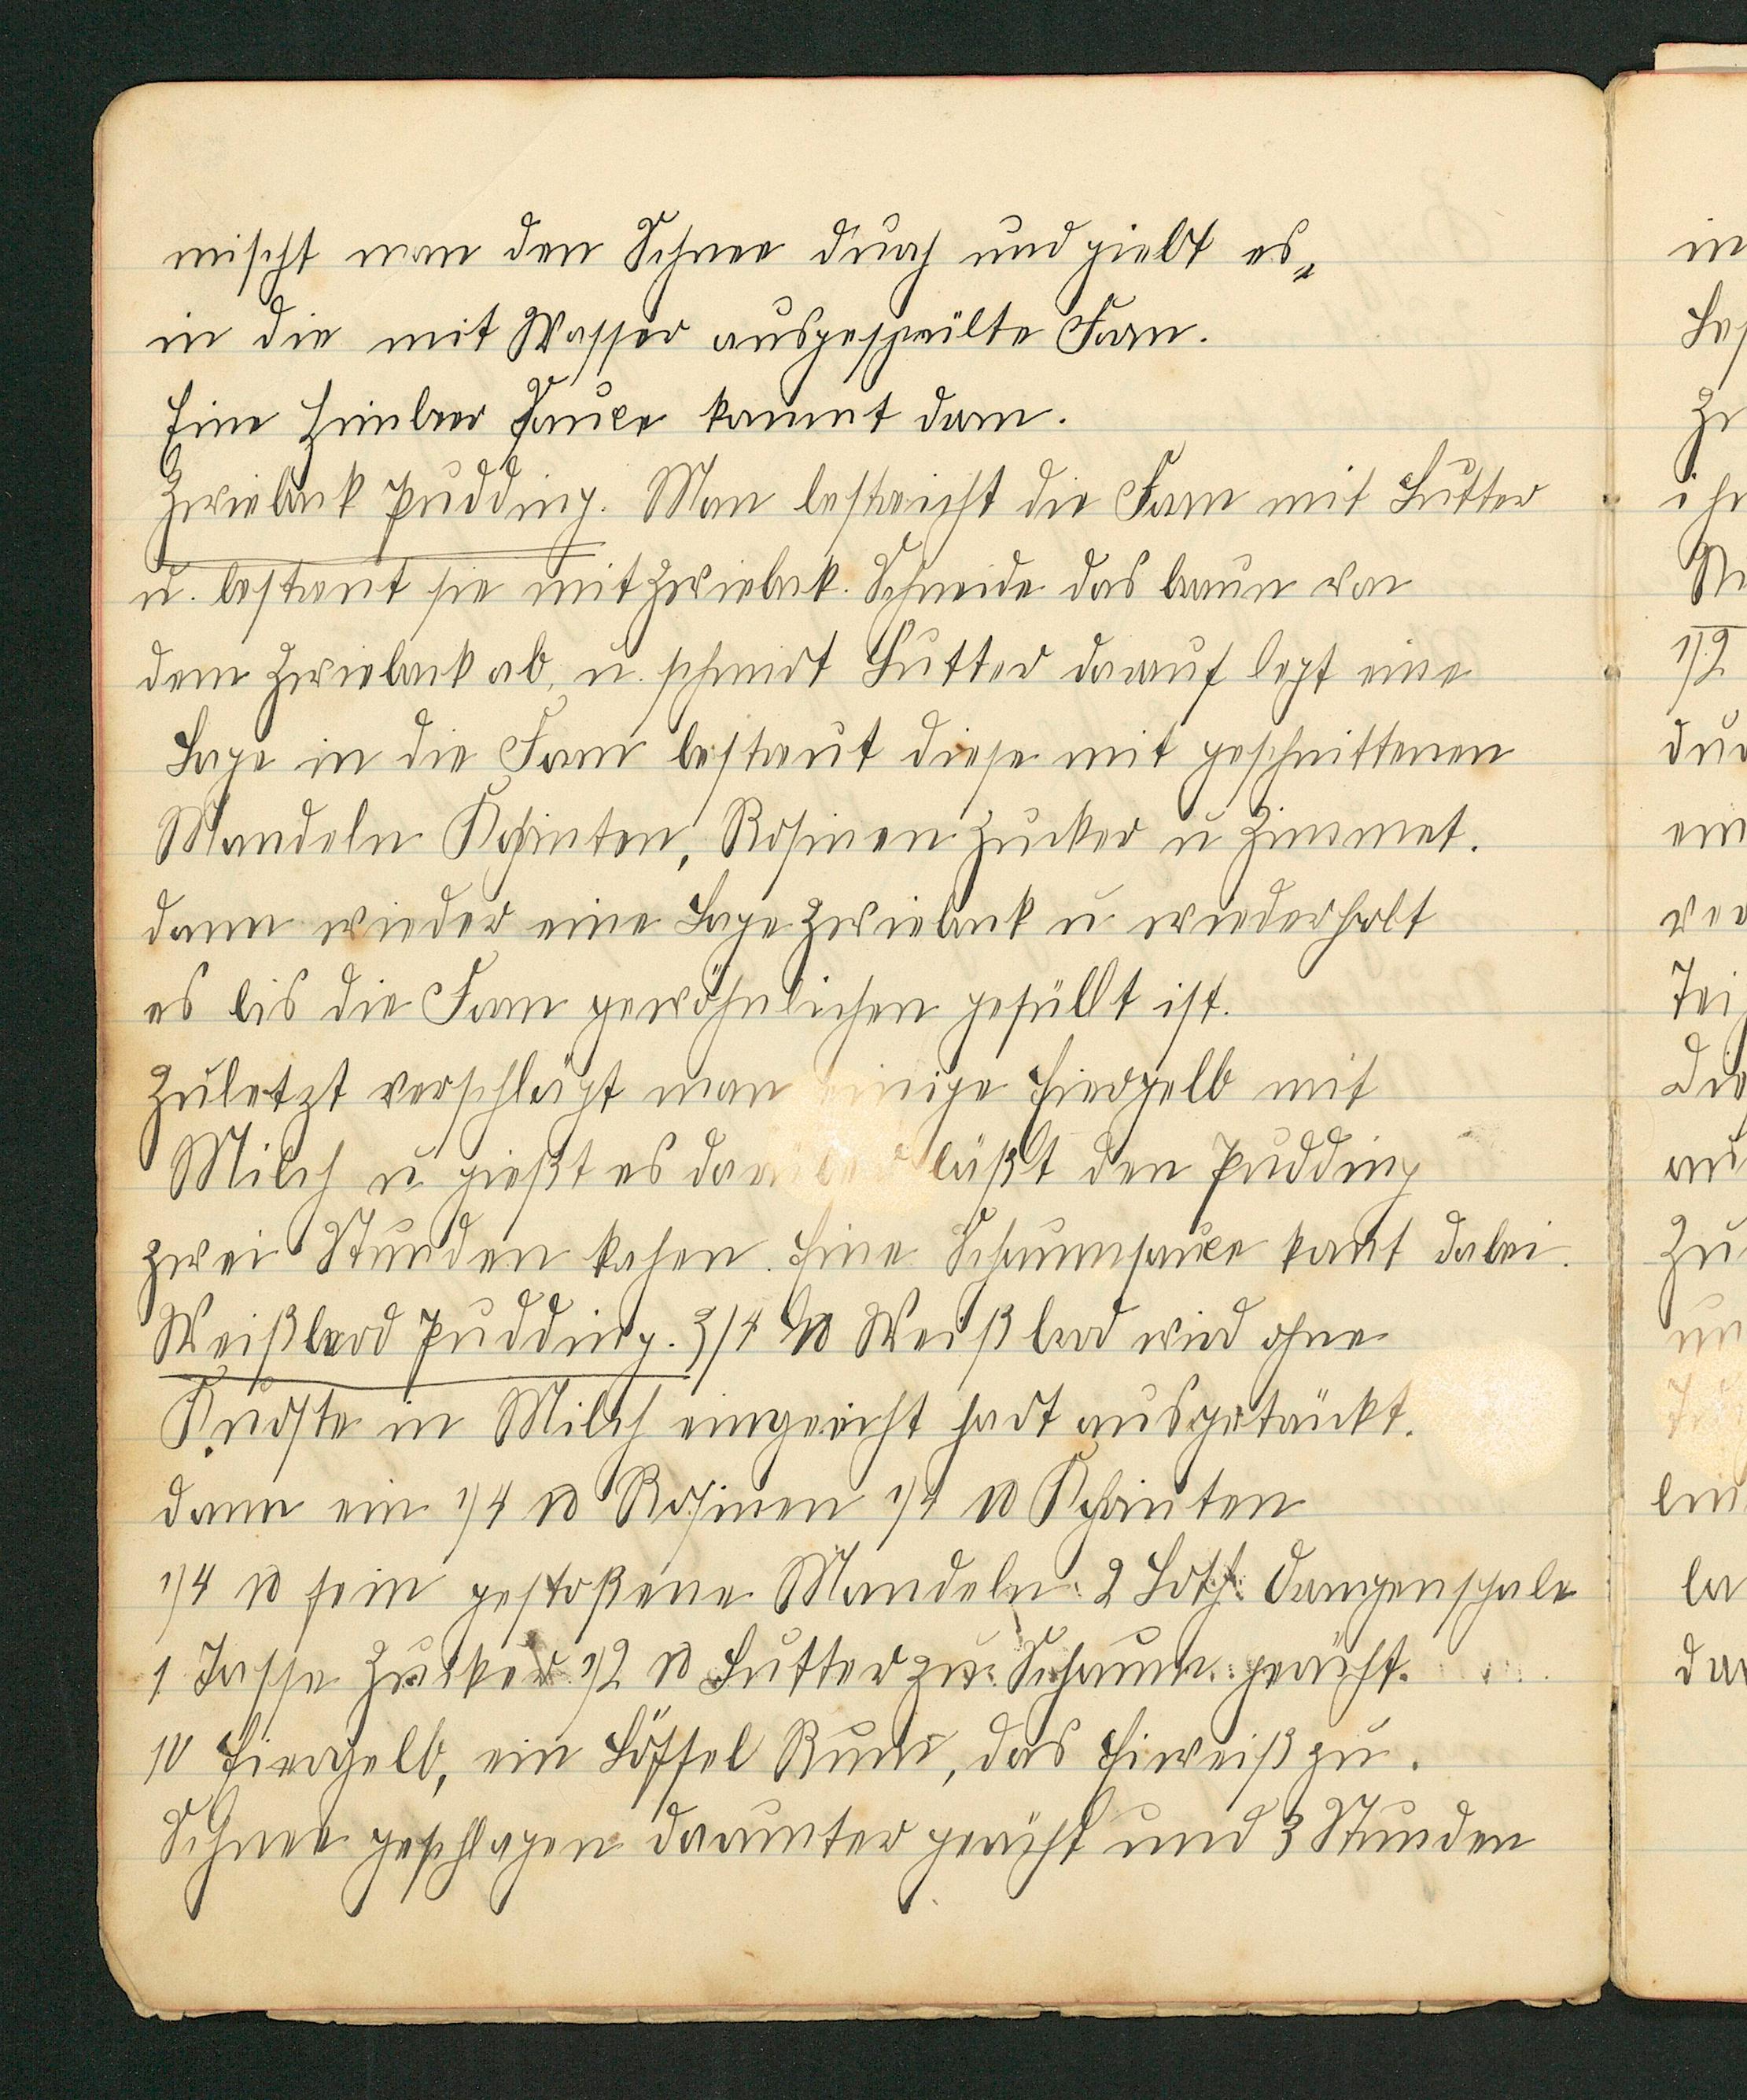 mischt man den Schnee durch und giebt es
in die mit Wasser ausgespülte Form.
Eine Himbeer Sauce kommt dran.
Zwieback Pudding. Man bestreicht die Form mit Butter
u. bestreut sie mit Zwieback. Schneide das braun von
dem Zwieback ab, u. schmirt Butter darauf legt eine
Lage in die Form bestreut diese mit geschnittenen
Mandeln Korinten, Rosinen Zucker u Zimmet.
dann wieder eine Lage Zwieback u wiederholt
es bis die Form gewöhnlichen gefüllt ist.
Zuletzt verschlägt man einige Eiergelb mit
Milch u gießt es darüber läßt den Pudding
zwei Stunden kochen. Eine Schaumsauce komt dabei.
Weißbrod Pudding. 3/4 ℔ Weißbrod wird ohne
Kruste in Milch eingeweicht hart ausgedrückt.
dann ein 1/4 ℔ Rosinen 1/4 ℔ Korinten
1/4 ℔ fein gestoßene Mandeln. 2 Loth Orangenschale
1 Tasse Zucker 1/2 ℔ Butter zu Schaum gerührt.
10 Eiergelb, ein Löffel Rum, das Eiweiß zu.
Schnee geschlagen darunter gerührt und 3 Stunden